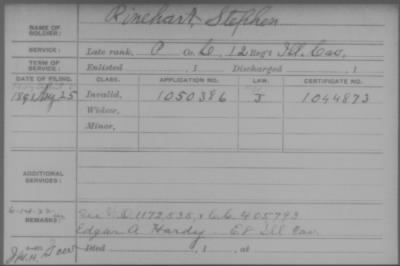 NAME OF SOLDIER: Rinehart, Stephen
SERVICE: Late rank, P Co. L, 12 Reg't Ill. Cav.
TERM OF SERVICE: Enlisted , 1 Discharged , 1
DATE OF FILING. CLASS. APPLICATION NO. LAW. CERTIFICATE NO.
1891 Aug 25 Invalid, 1050386 J 1044873
Widow,
Minor,
ADDITIONAL SERVICES:
REMARKS: 1172535, 405793
Edgar A Hardy Ill Cav
Died , 1 , at